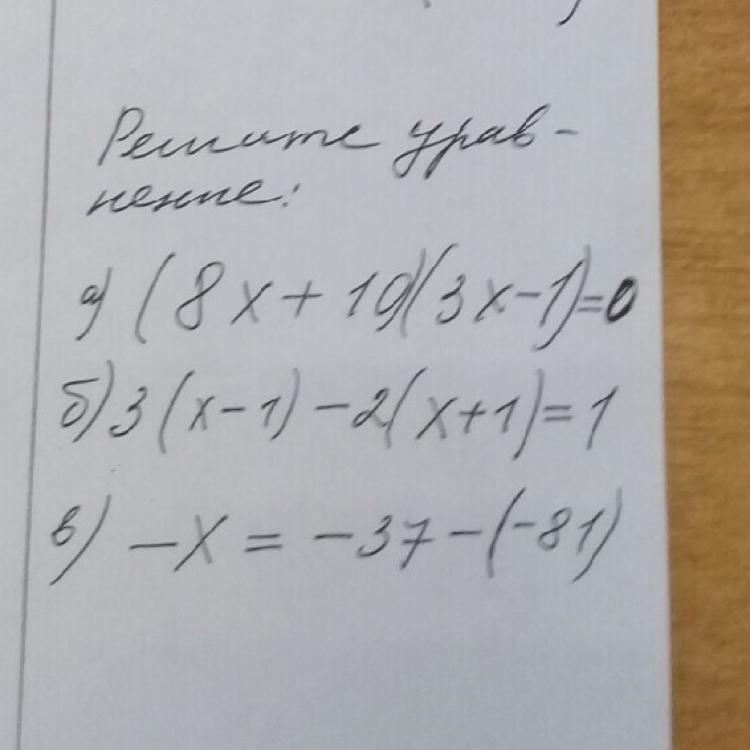 Решите урав-
нение:
а) (8x+10)(3x-1)=0
б) 3(x-1)-2(x+1)=1
в) -x = -37-(-81)